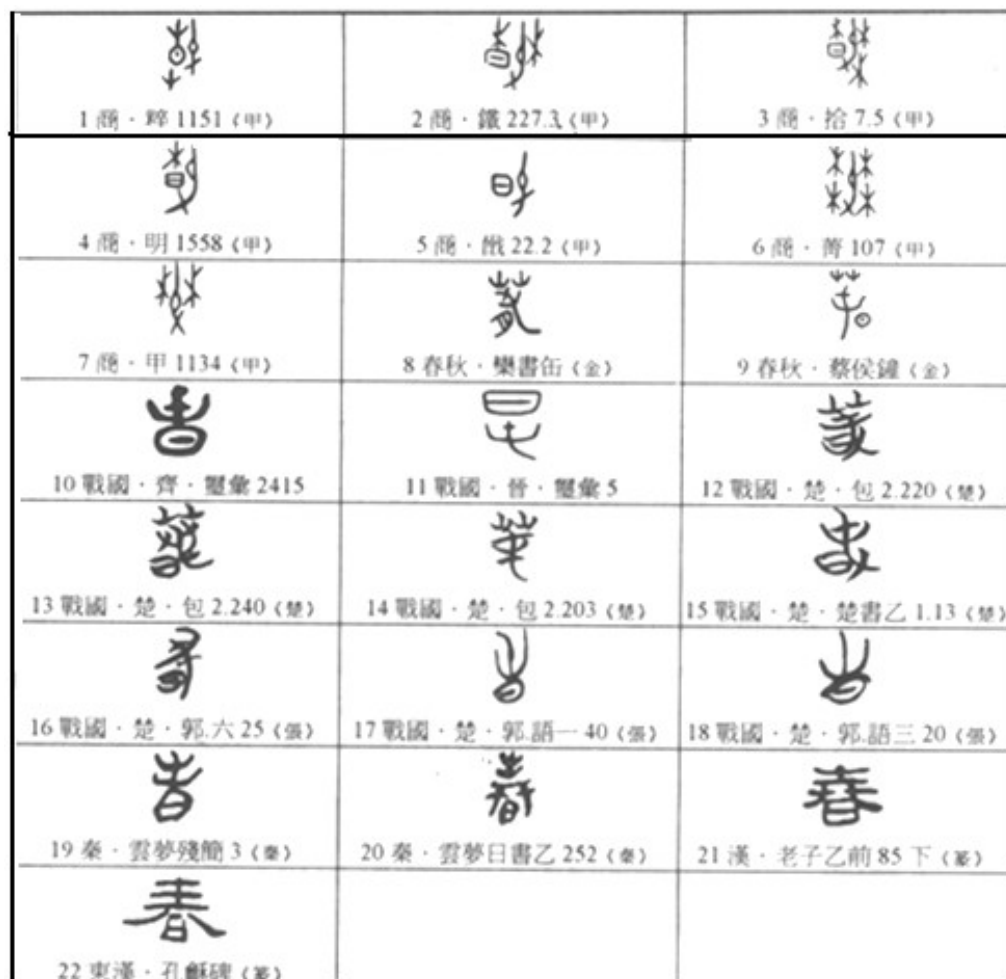 1 商·粹 1151(甲)
2 商·鐵 227.3(甲)
3 商·拾 7.5(甲)
4 商·明 1558(甲)
5 商·戩 22.2(甲)
6 商·菁 107(甲)
7 商·甲 1134(甲)
8 春秋·欒書缶(金)
9 春秋·蔡侯鐘(金)
10 戰國·齊·璽彙 2415
11 戰國·晉·璽彙 5
12 戰國·楚·包 2.220(楚)
13 戰國·楚·包 2.240(楚)
14 戰國·楚·包 2.203(楚)
15 戰國·楚·楚書乙 1.13(楚)
16 戰國·楚·郭.六 25(張)
17 戰國·楚·郭.語一 40(張)
18 戰國·楚·郭.語三 20(張)
19 秦·雲夢殘簡 3(秦)
20 秦·雲夢日書乙 252(秦)
春
21 漢·老子乙前 85 下(篆)
春
22 東漢·孔龢碑(篆)